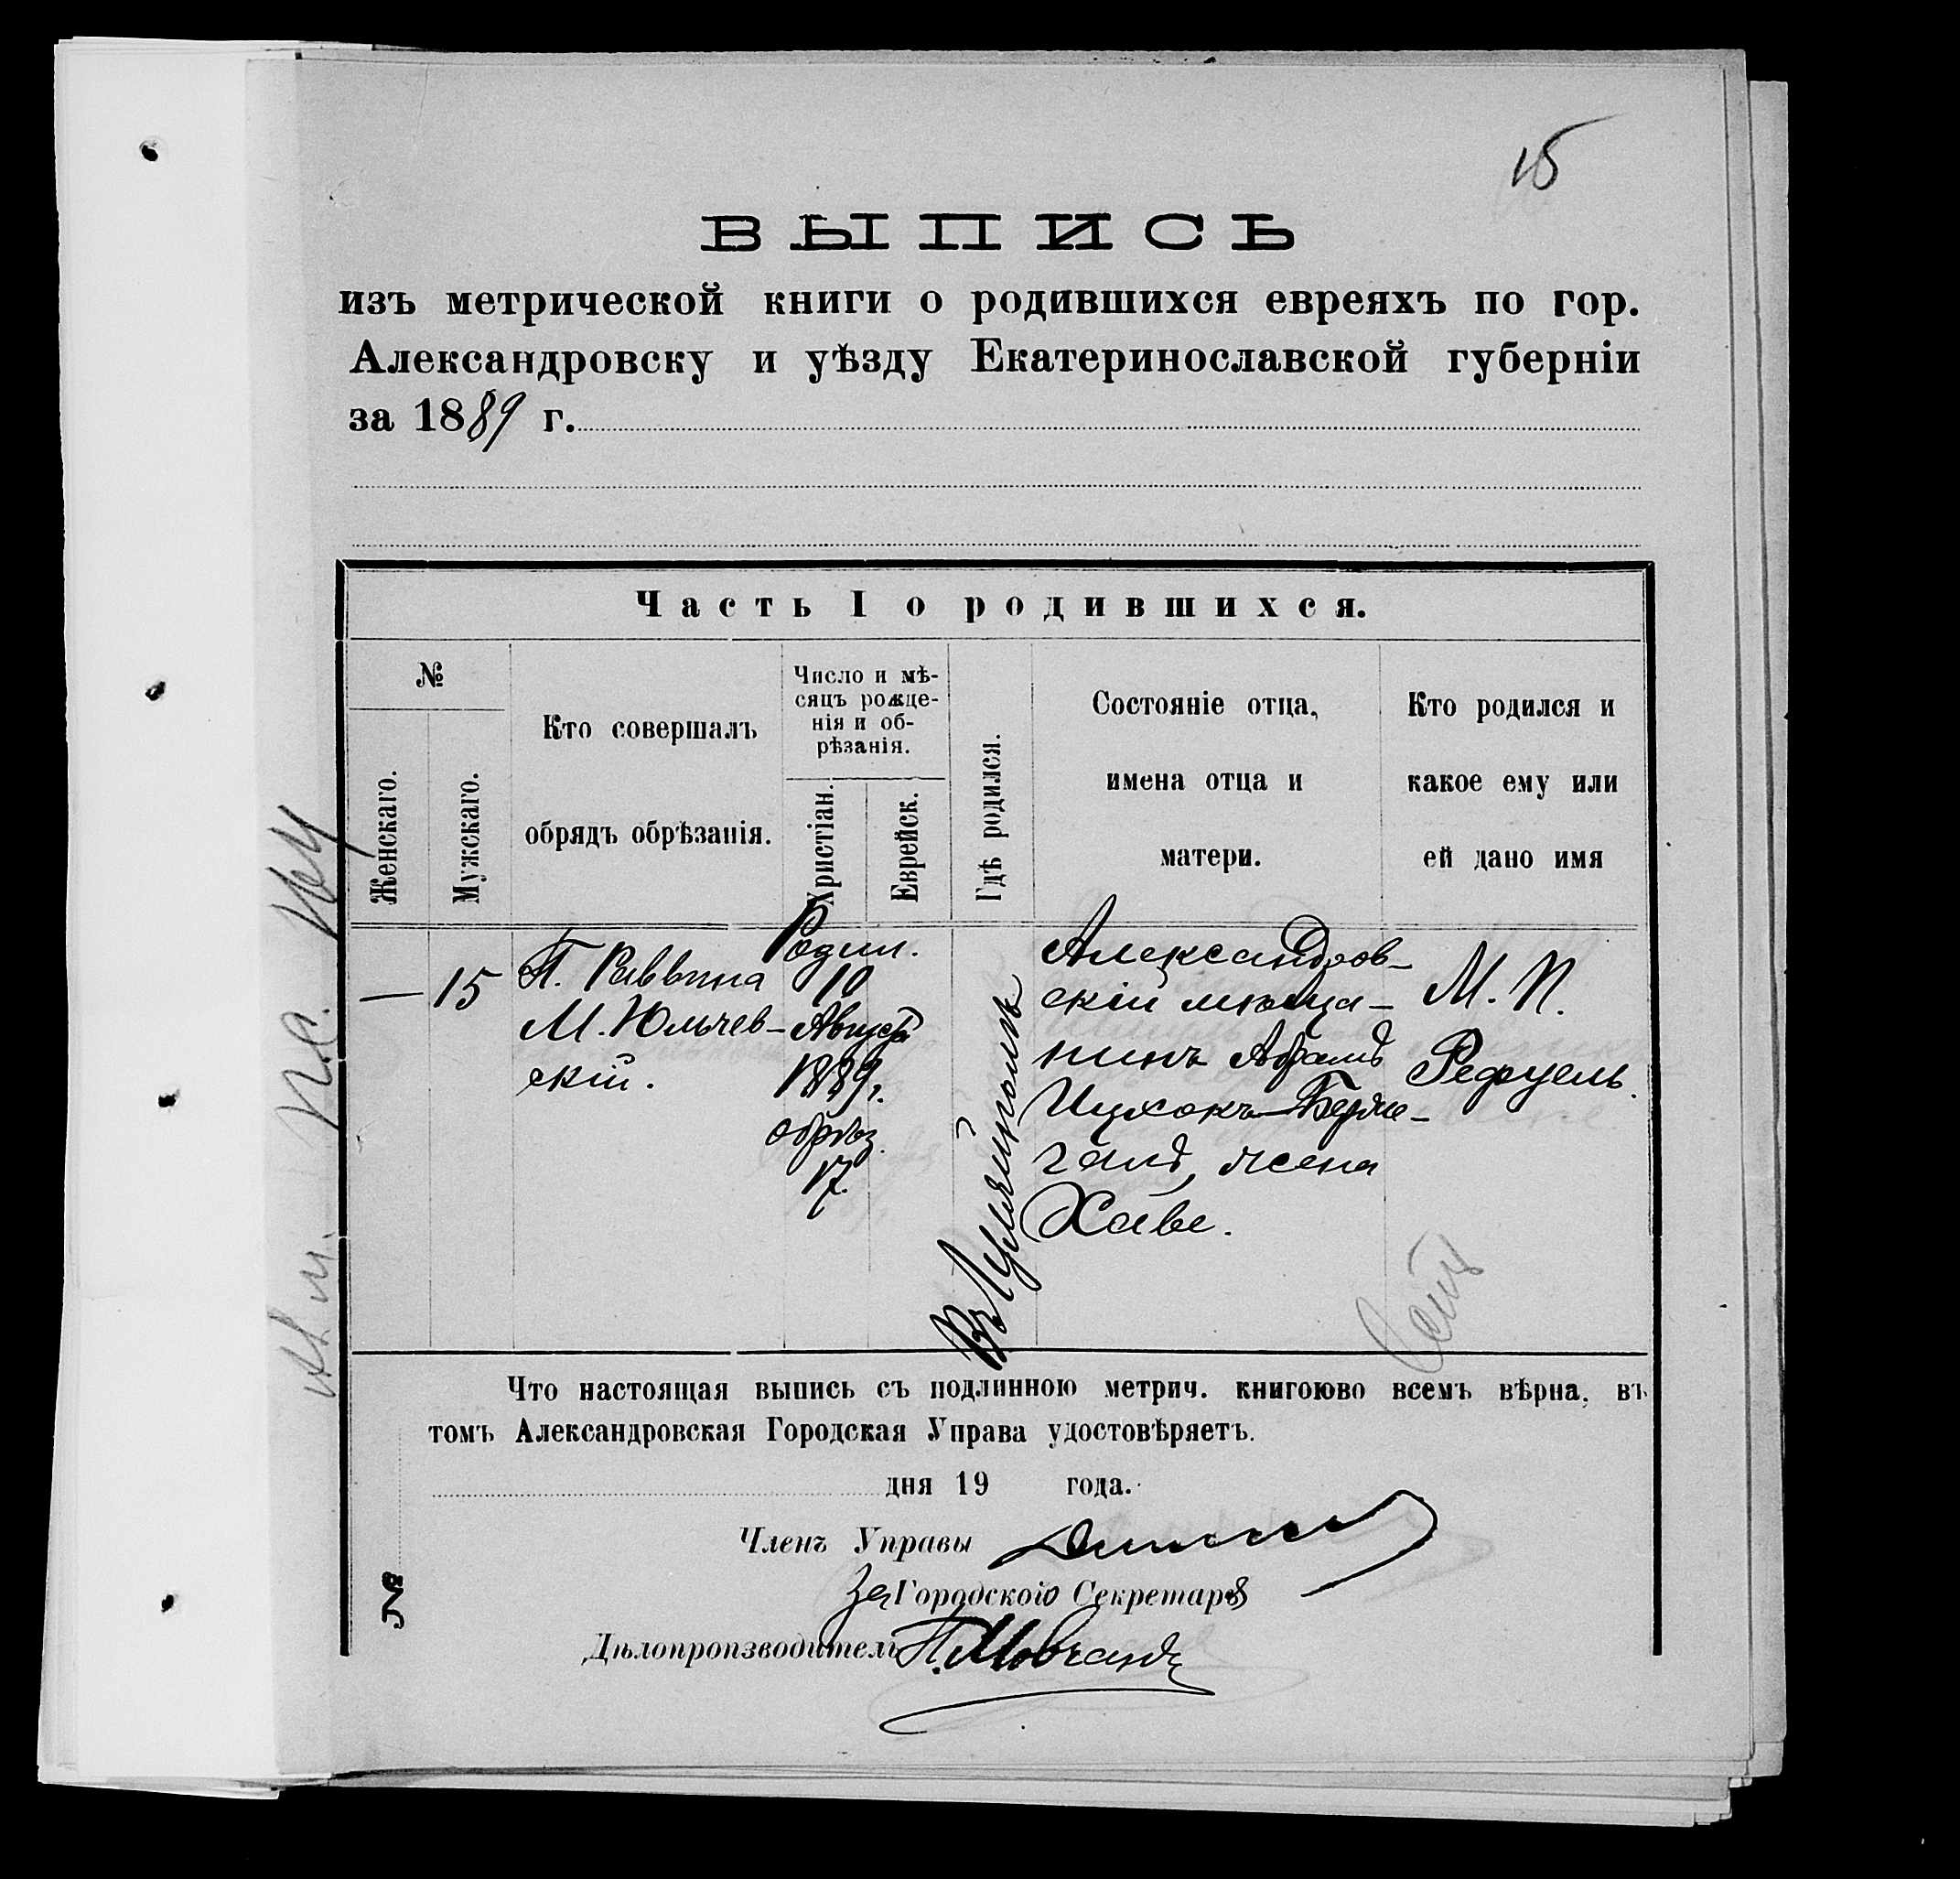 15
ВЫПИСЬ
изъ метрической книги о родившихся евреяхъ по гор.
Александровску и уѣзду Екатеринославской губерніи
за 1889 г.
Часть I о родившихся.
№
Женскаго.
Мужскаго.
Кто совершалъ
обрядъ обрѣзанія.
Число и мѣ-
сяцъ рожде-
нія и об-
рѣзанія.
Христіан.
Еврейск.
Гдѣ родился.
Состояніе отца,
имена отца и
матери.
Кто родился и
какое ему или
ей дано имя
— 15
П. Раввина
М. Юльев-
скій.
Родил.
10
Август
1889 г.
обрѣз.
17.
Въ Гуляйполѣ
Александров-
скій мѣща-
нинъ Абрамъ
Ицхокъ
жена
Хаве.
М. П.
Рефуель.
Что настоящая выпись съ подлинною метрич. книгоюво всемъ вѣрна, въ
томъ Александровская Городская Управа удостовѣряетъ.
дня 19 года.
Членъ Управы
За Городского Секретаря
№
Дѣлопроизводитель П. Мовчанъ